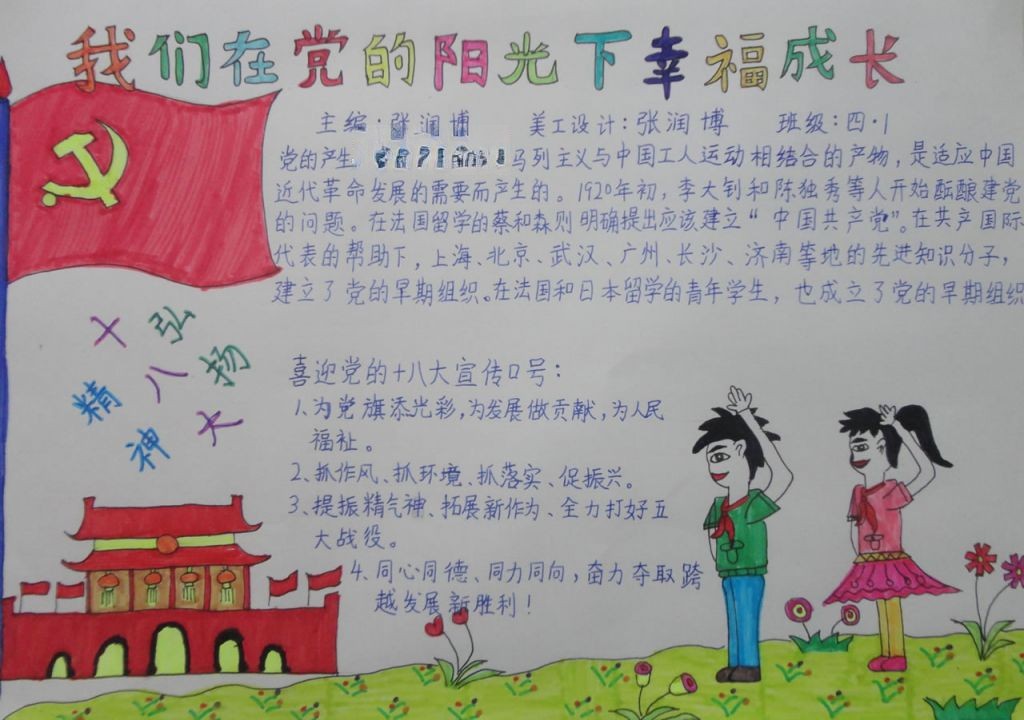 我们在党的阳光下幸福成长
主编：张润博 美工设计：张润博 班级：四·1
党的产生 马列主义与中国工人运动相结合的产物，是适应中国
近代革命发展的需要而产生的。1920年初，李大钊和陈独秀等人开始酝酿建党
的问题。在法国留学的蔡和森则明确提出应该建立“中国共产党”。在共产国际
代表的帮助下，上海、北京、武汉、广州、长沙、济南等地的先进知识分子，
建立了党的早期组织。在法国和日本留学的青年学生，也成立了党的早期组织
弘扬
十八大
精神
喜迎党的十八大宣传口号：
1、为党旗添光彩，为发展做贡献，为人民
福祉。
2、抓作风、抓环境、抓落实、促振兴。
3、提振精气神、拓展新作为、全力打好五
大战役。
4、同心同德、同力同向，奋力夺取跨
越发展新胜利！